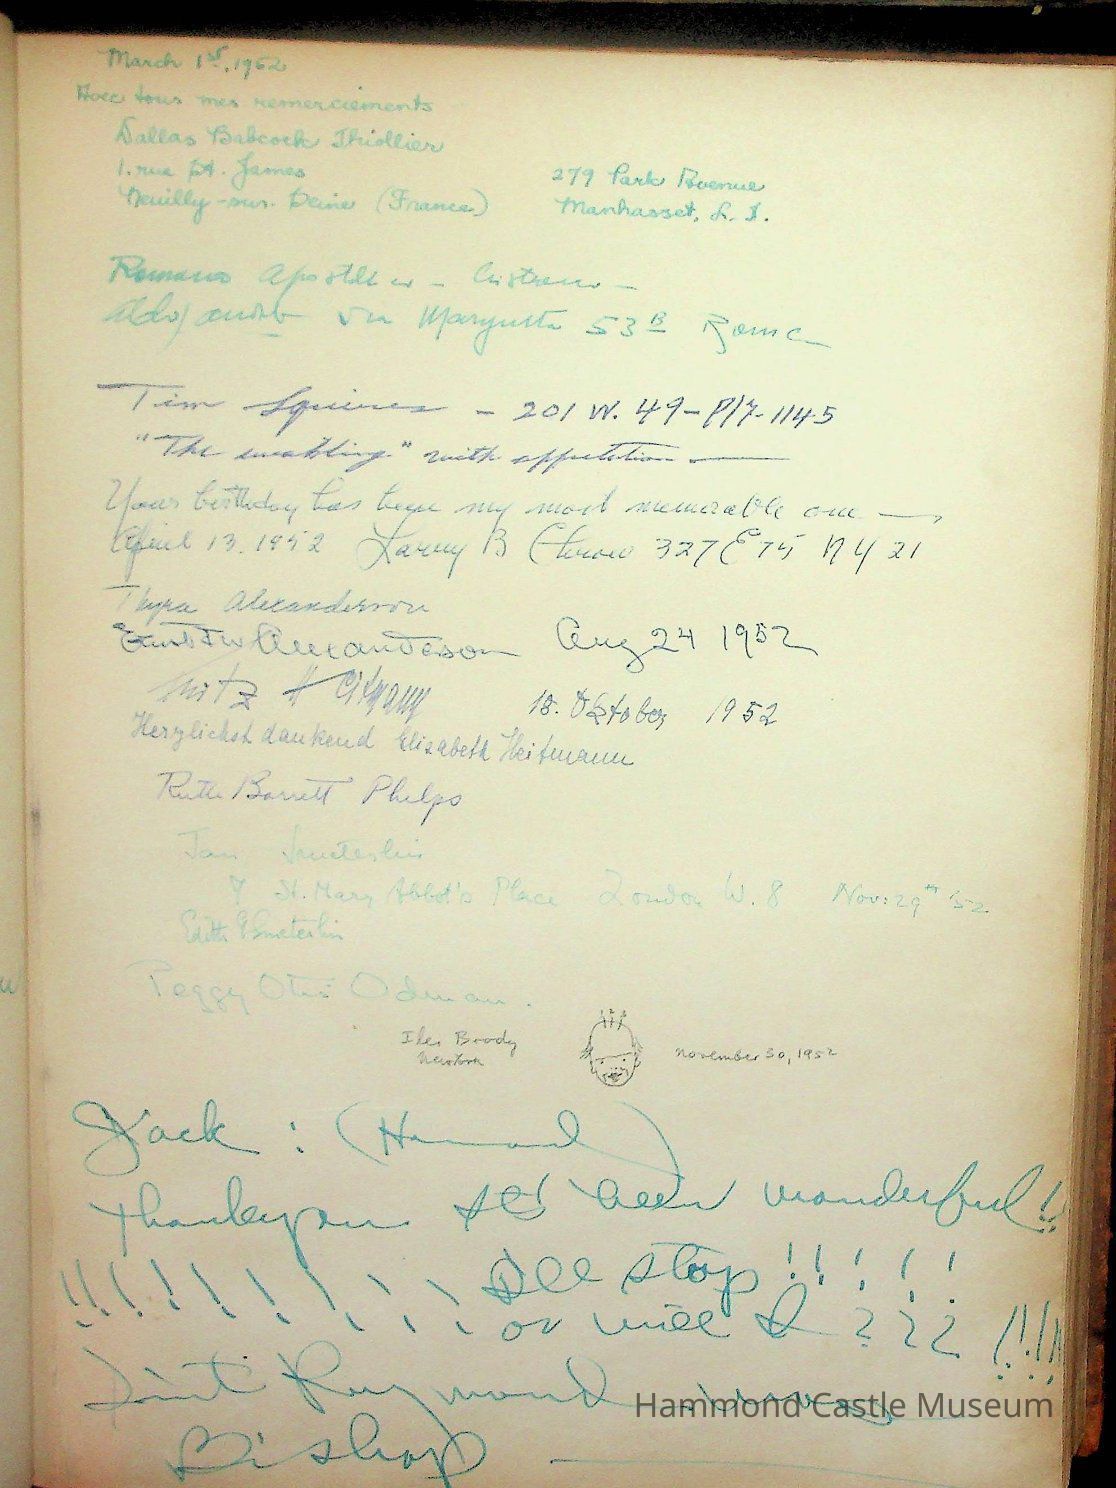 March 1st, 1952
Avec tous mes remerciements
Dallas Babcock Thiollier
1. rue St. James
279 Park Avenue
Neuilly-sur-Seine (France)
Manhasset, L. I.
Romano
via Margutta 53B Roma
Tim Squires - 201 W. 49 - Pl7-1145
"The" with
Your birthday has been my most memorable one
April 13. 1952 Larry B 327 E 75 N Y 21
Thyra Alexanderson
Alexanderson Aug 24 1952
Fritz Heitmann 18. Oktober 1952
Herzlichst dankend Elisabeth Heitmann
Ruth Barrett Phelps
Jan Smeterlin
7 St. Mary Abbot's Place London W. 8 Nov: 29th '52
Edith Smeterlin
Peggy Otis Odman.
Iles Brody
November 30, 1952
Jack: (Hammond)
Thank you it's been wonderful!!
!!!!!!!!!! I'll stop!!!!!!
or will I ??? !!!!!
Raymond
Bishop
Hammond Castle Museum